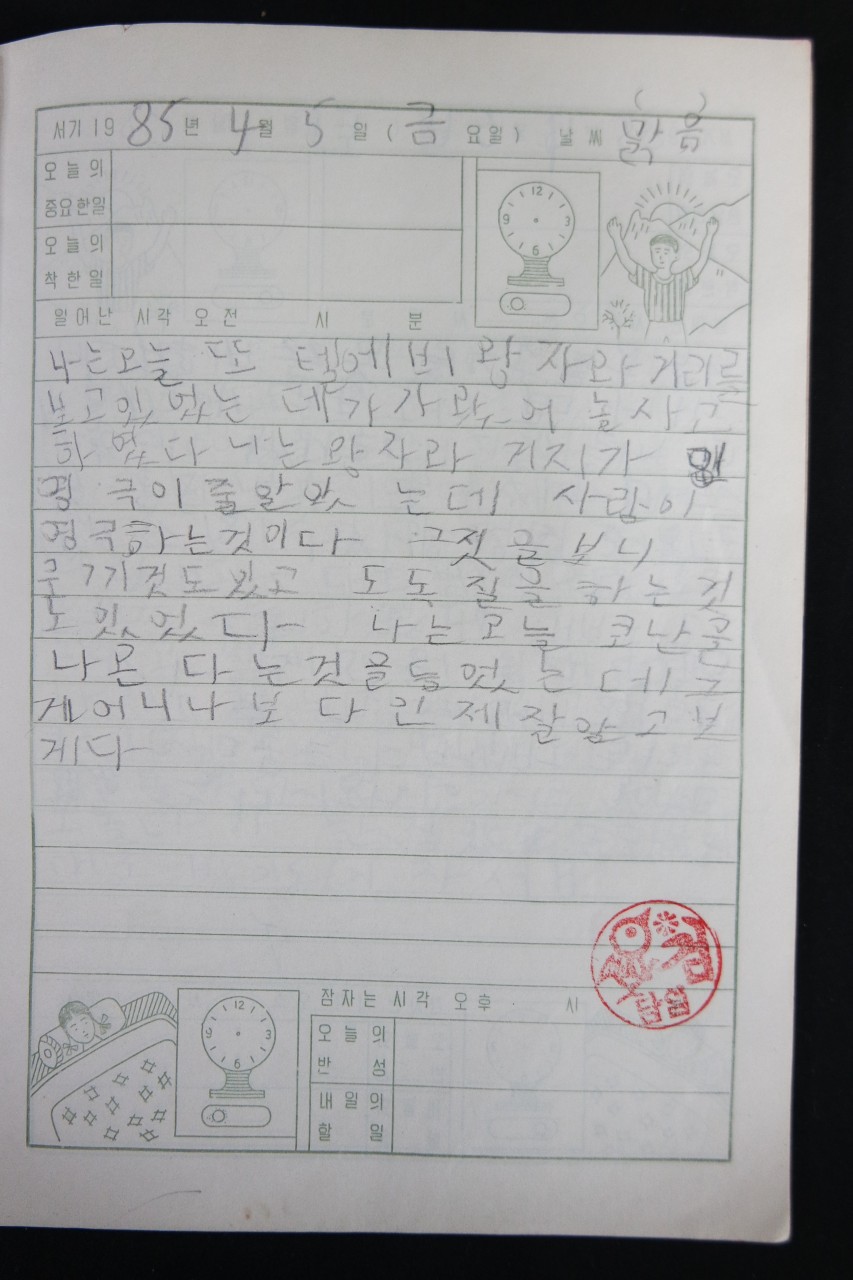 서기 19 85년 4월 5일 (금 요일) 날씨 맑음
오늘의
중요한일
오늘의
착한일
12
9 3
6
일어난 시각 오전 시 분
나는오늘 또 텔에비 왕자와거리를
보고있었는데가가 와 놀
하였다 나는왕자라 거지가
영극이줄알았는데 사람이
영극하는것이다 그젓을보니
웃기기것도있고 도독질을하는것
도있었다 나는오늘 코난을
나온다는것을들었는데
게어니나보다인제잘알고보
게다
12
9 3
6
잠자는 시각 오후 시
오늘의
반성
내일의
할일
검